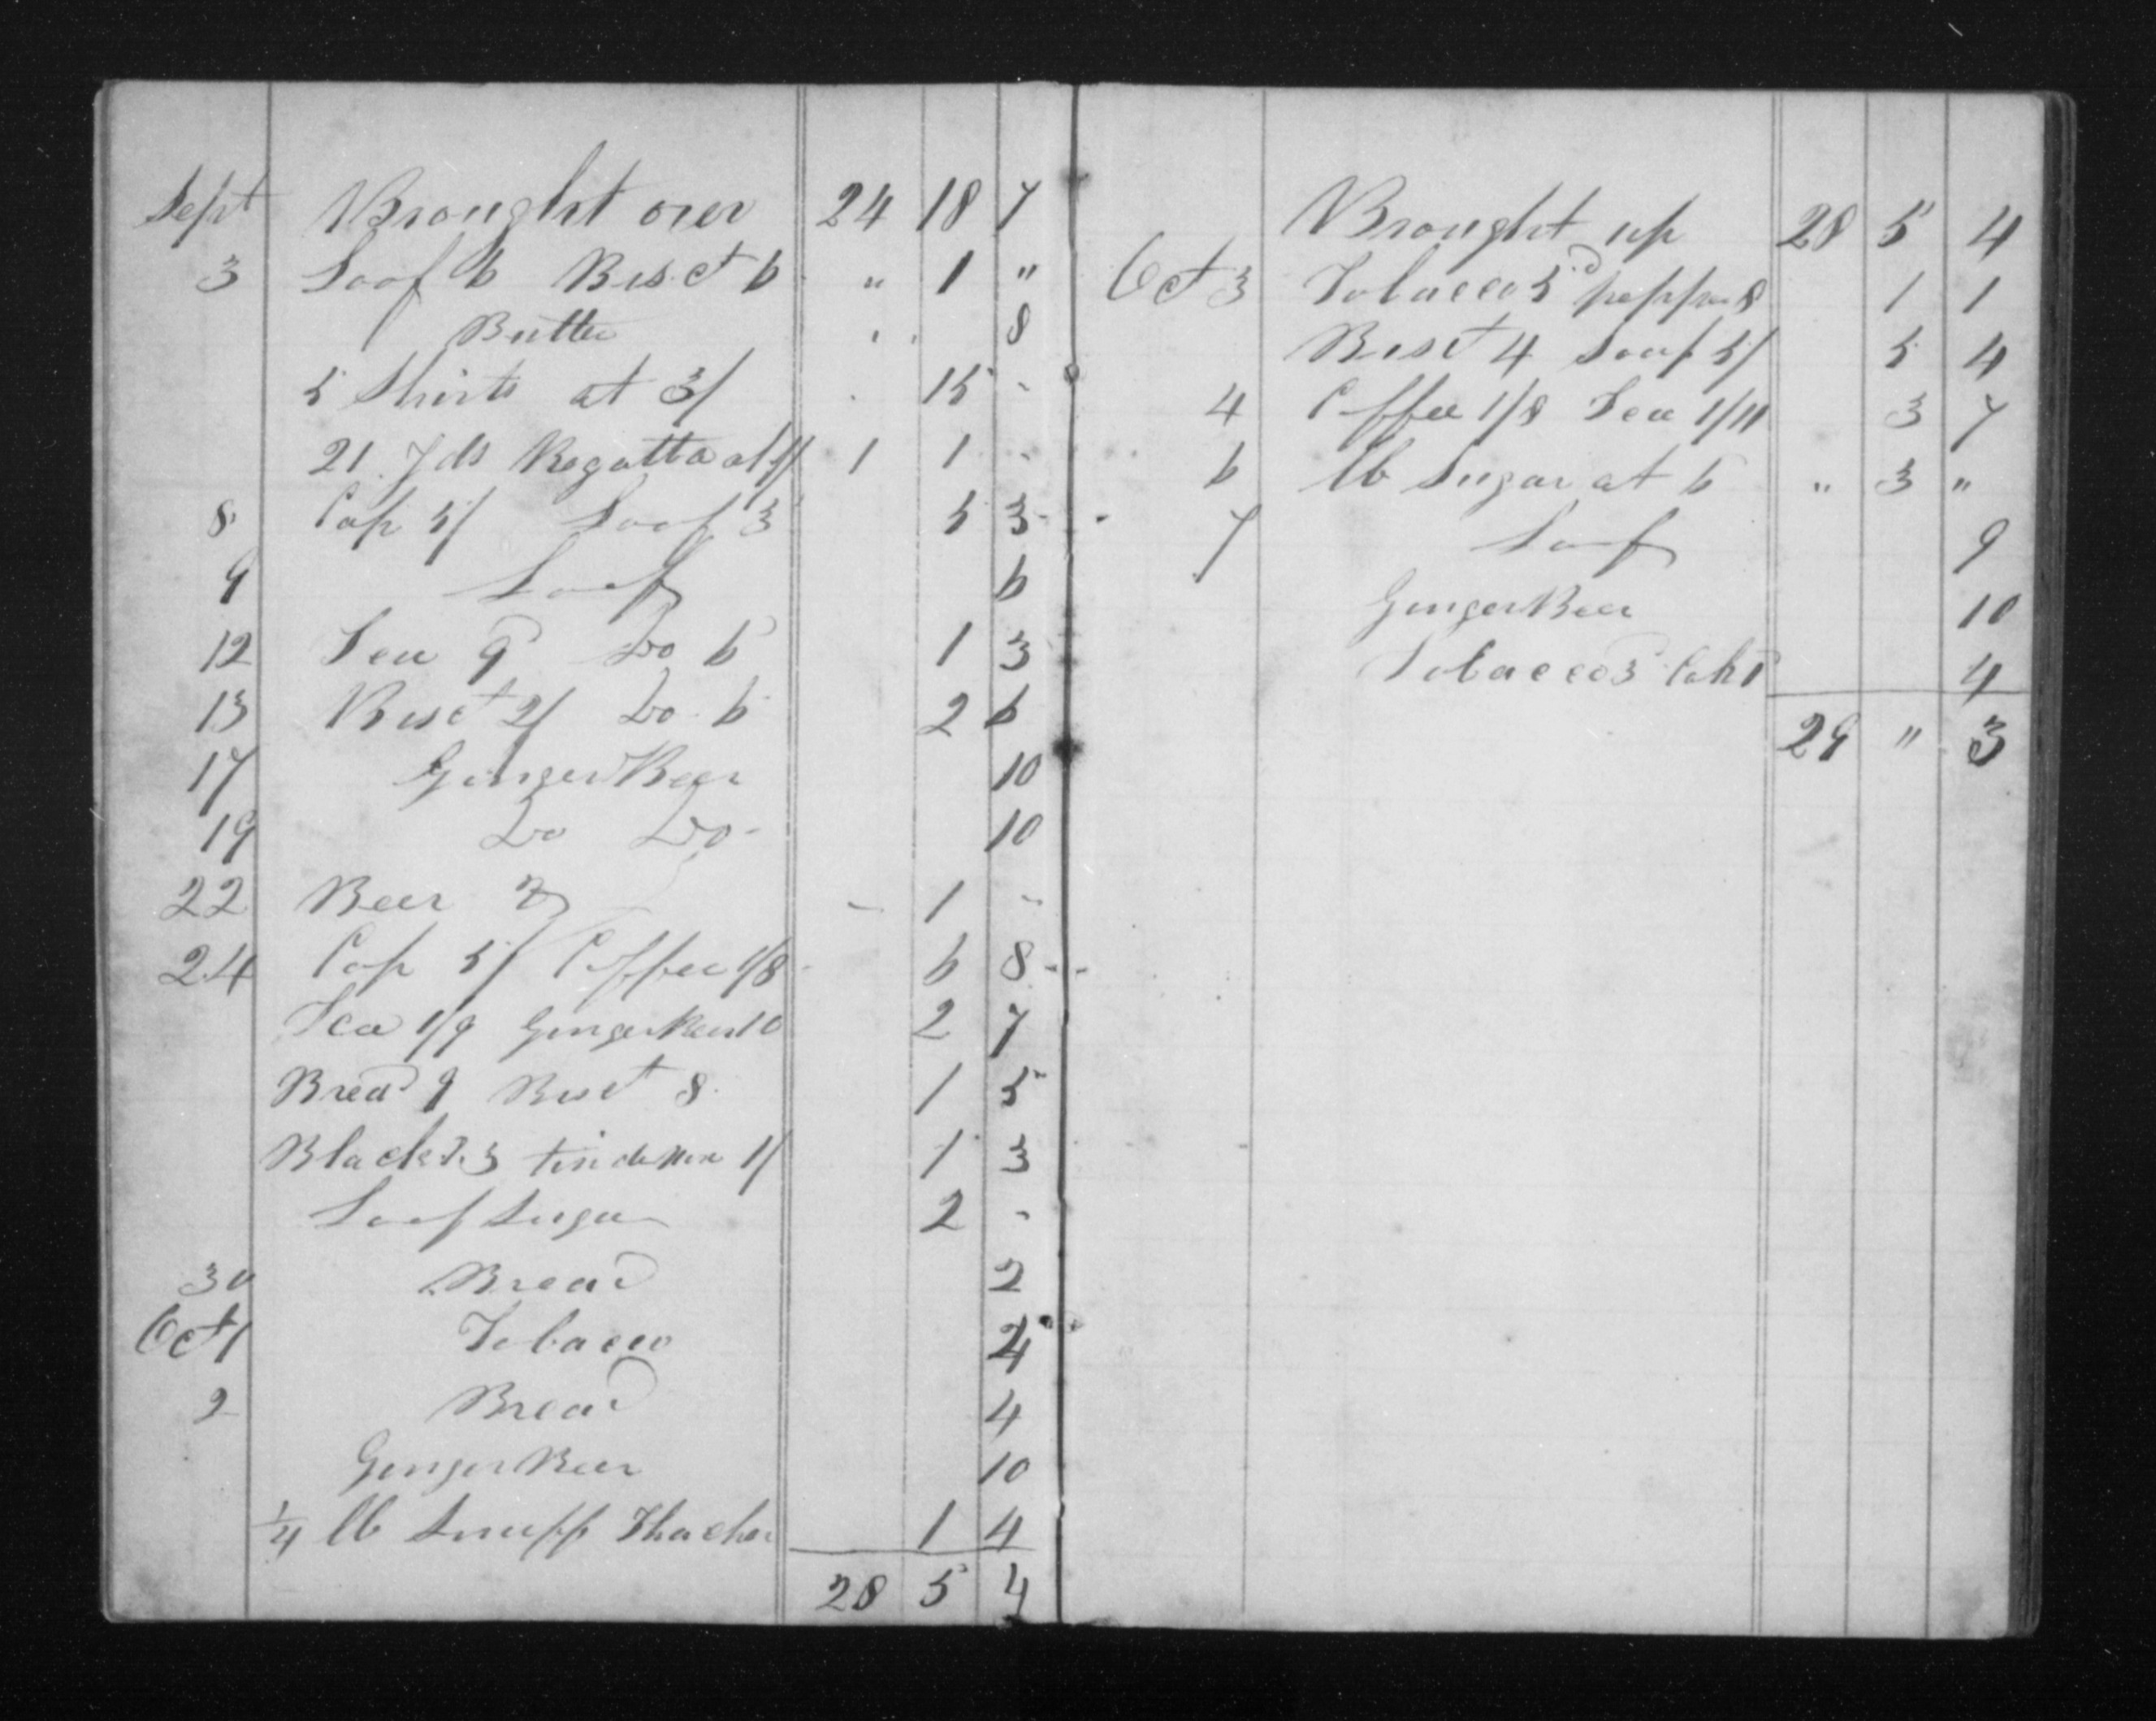 Sept Brought over 24 18 7
3 Loaf 6 Bisct 6 " 1 "
Butter 8
5 Shirts at 3/ 15 -
21 Yds Regatta at 1/ 1 1 -
8 Cap 5/ Loaf 3 5 3
9 Loaf 6
12 Tea 9 Do 6 1 3
13 Bisct 2/ Do 6 2 6
17 Ginger Beer 10
19 Do Do 10
22 Beer - 1 -
24 Cap 5/ Coffee 1/8 6 8
Tea 1/9 Ginger Beer 10 2 7
Bread 9 Bisct 8 1 5
Black 3 1/ 1 3
Loaf Sugar 2 -
30 Bread 2
Oct 1 Tobacco 4
2 Bread 4
Ginger Beer 10
1/4 lb Snuff 1 4
28 5 4
Brought up 28 5 4
Oct 3 Tobacco 5 pepper 8 1 1
Bisct 4 5/ 5 4
4 Coffee 1/8 Tea 1/11 3 7
6 lb Sugar at 6 " 3 "
7 Loaf 9
Ginger Beer 10
Tobacco 3 1 4
29 " 3